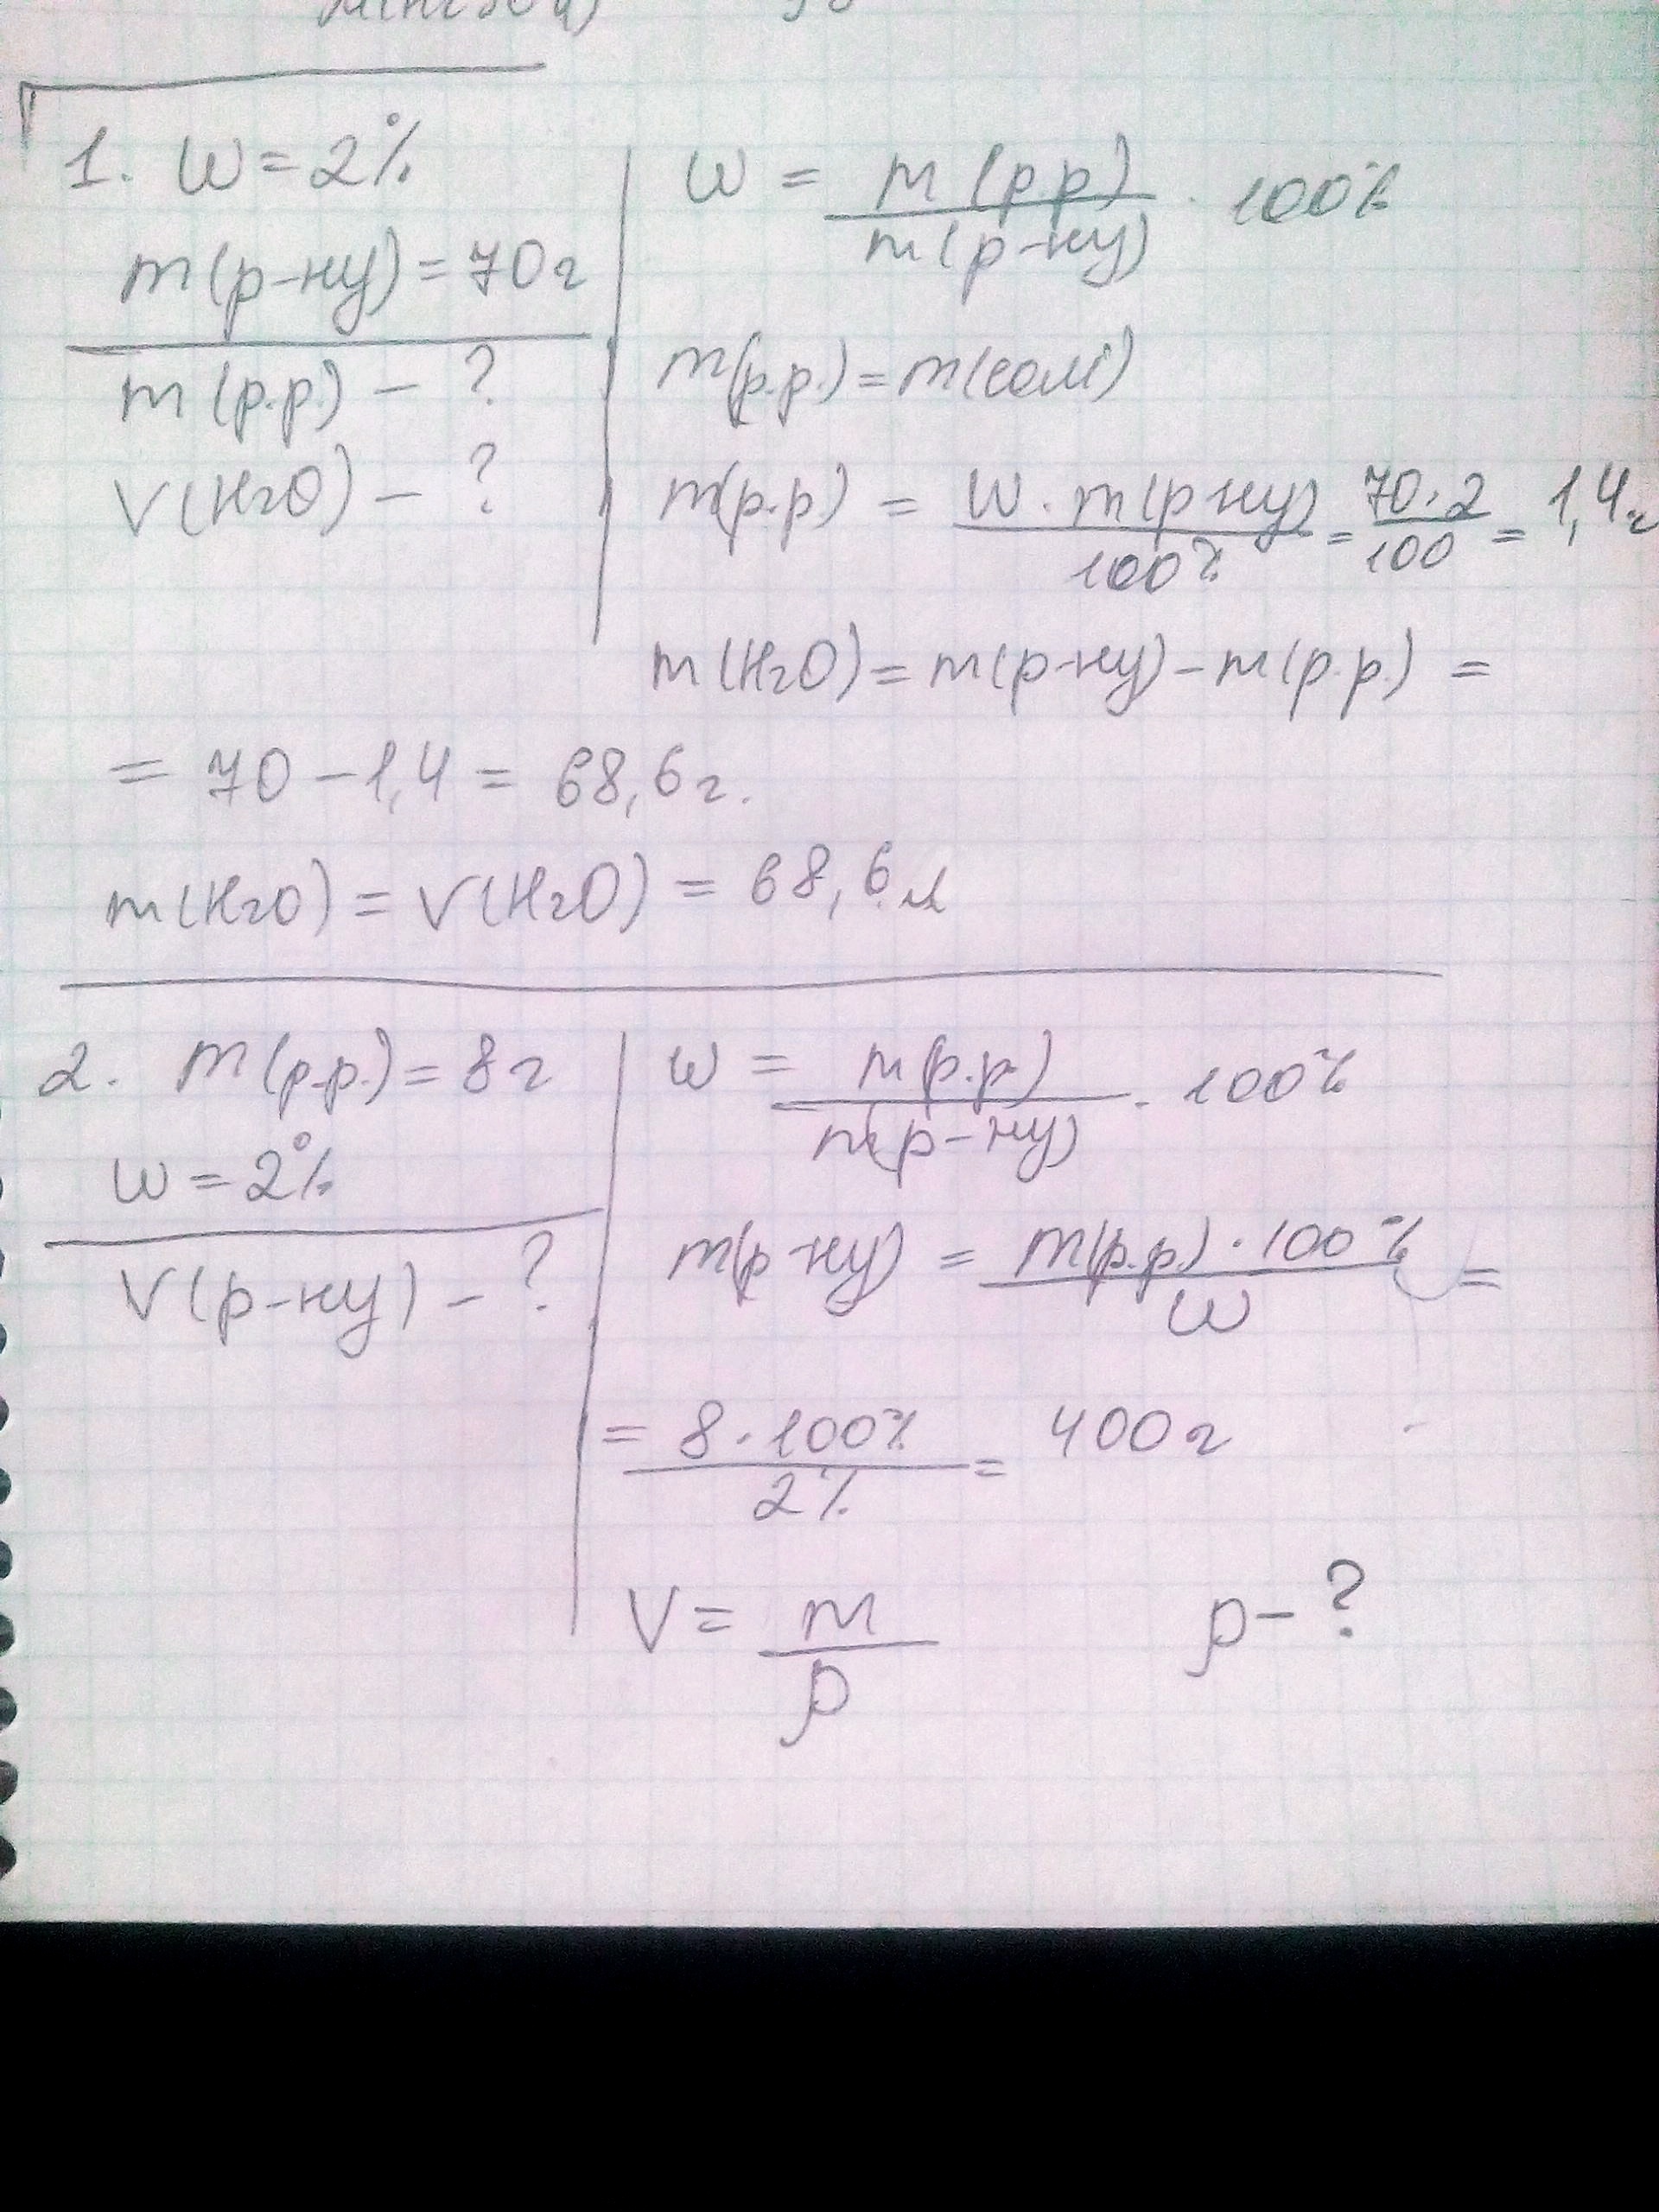 1. W = 2%
m(р-ну) = 70г
m(р.р.) - ?
V(H2O) - ?
W = m(р.р) / m(р-ну) · 100%
m(р.р.) = m(солі)
m(р.р) = W · m(р-ну) / 100% = 70 · 2 / 100 = 1,4г
m(H2O) = m(р-ну) - m(р.р.) =
= 70 - 1,4 = 68,6г.
m(H2O) = V(H2O) = 68,6 л
2. m(р.р.) = 8г
W = 2%
V(р-ну) - ?
W = m(р.р) / m(р-ну) · 100%
m(р-ну) = m(р.р.) · 100% / W =
= 8 · 100% / 2% = 400г
V = m / ρ
ρ - ?